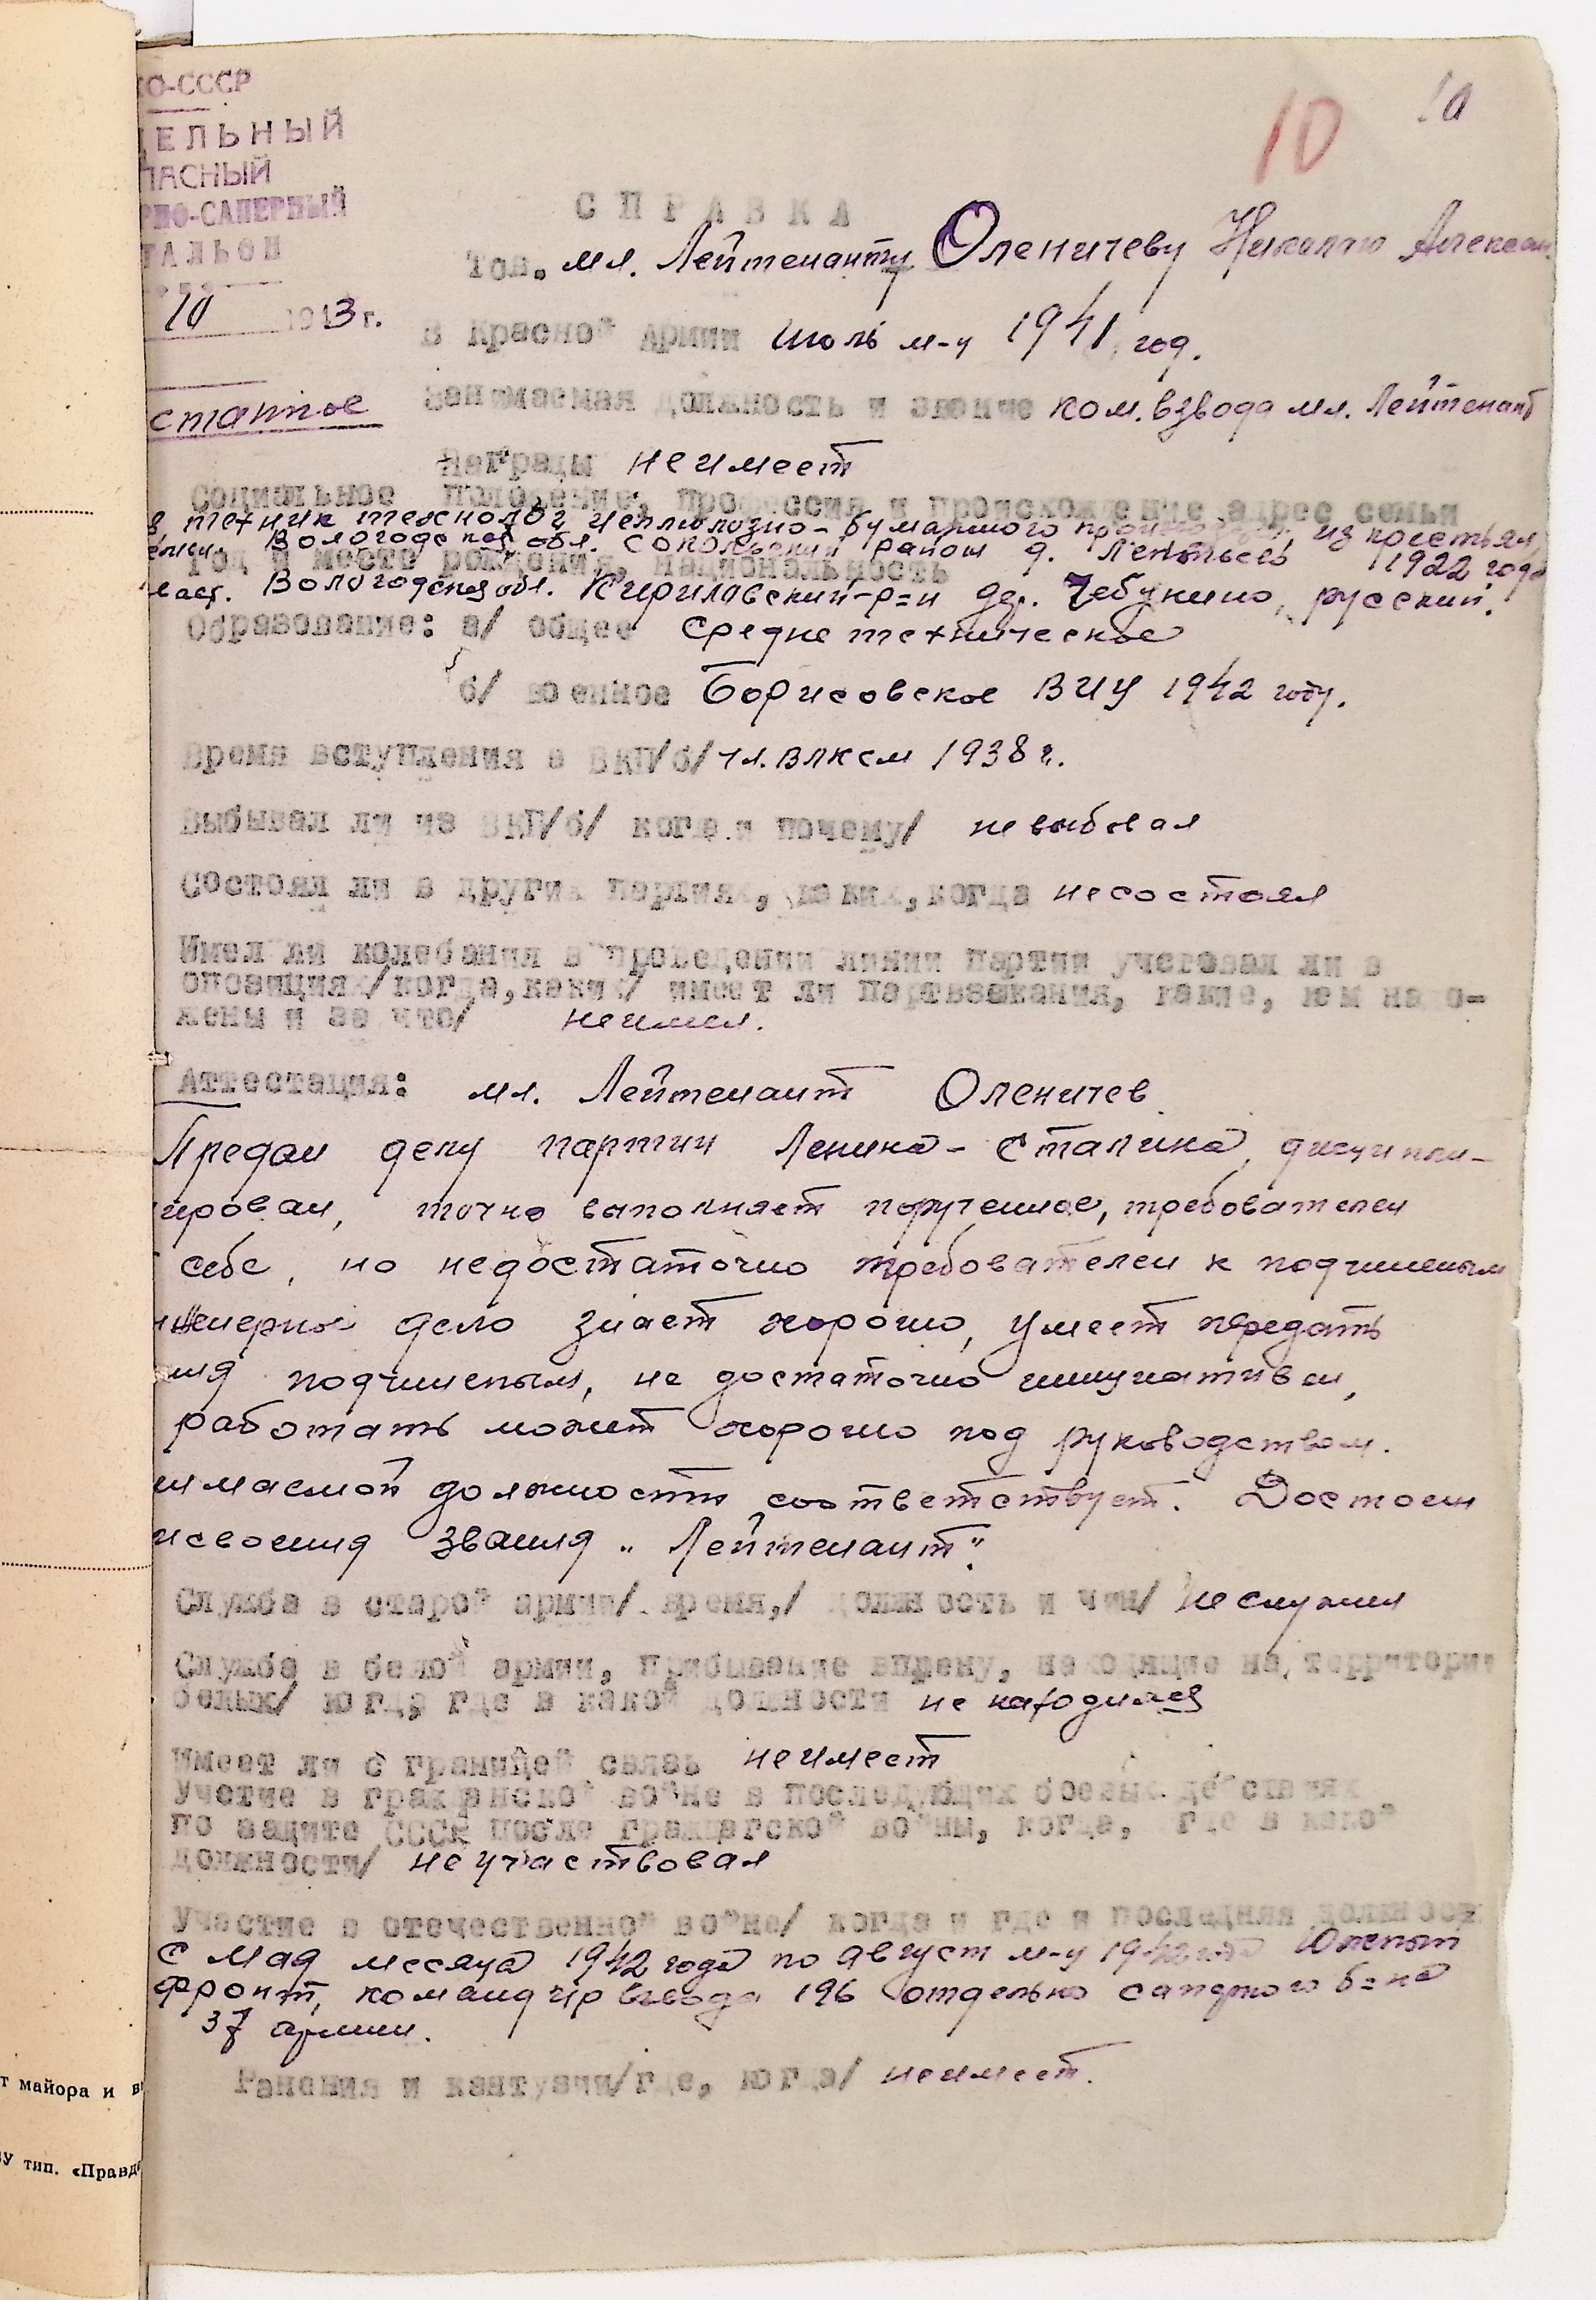 КО-СССР
ДЕЛЬНЫЙ
ПАСНЫЙ
РНО-САПЕРНЫЙ
ТАЛЬОН
10 1943 г.
10
10
СПРАВКА
Тов. мл. Лейтенанту Оленичеву Николаю Алексан
В Красной Армии июль м-ц 1941 год.
статное
Занимаемая должность и звание ком. взвода мл. Лейтенант
Награды неимеет
Социальное положение, профессия и происхождение адрес семьи
техник технолог целлюлозно-бумажного из крестьян,
Вологодская обл. Сокольский район д.
Год и место рождения, национальность 1922 года
Вологодская обл. Кирилавский р=н дер. Чебунино, русский.
Образование: а/ общее Средне техническое
б/ военное Борисовское ВИУ 1942 году.
Время вступления в ВКП/б/ чл. ВЛКСМ 1938 г.
Выбывал ли из ВКП/б/ когда и почему/ не выбовал
Состоял ли в других партиях, каких, когда несостоял
Имел ли колебания в проведении линии партии учствовал ли в
опозициях/когда, каких/ имеет ли партвзыскания, какие, кем нало-
жены и за что/ неимел.
Аттестация: мл. Лейтенант Оленичев
Предан делу партии Ленина-Сталина, дисциплин-
ирован, точно выполняет порученное, требователен
себе, но недостаточно требователен к подчиненым
нженерное дело знает хорошо, умеет передать
ия подчиненым, не достаточно инициативен,
работать может хорошо под руководством.
имаемой должности соответствует. Достоен
исвоения звания „Лейтенант".
Служба в старой армии/ время,/ должность и чин/ не служил
Служба в белой армии, прибывание вплену, находящие на территорие
белых/ когда, где в какой должности не находился
Имеет ли с границей связь неимеет
Участие в гражданской войне в последующих боевых действиях
по защите СССР после гражданской войны, когда, где в какой
должности/ неучаствовал
Участие в отечественной войне/ когда и где и последняя должност
с мая месяца 1942 года по август м-ц 1942 года Южный
фронт, командир взвода 196 отдельно саперного б=на
37 армии.
Ранения и кантузии/где, когда/ неимеет.
т майора и в
У тип. «Правд